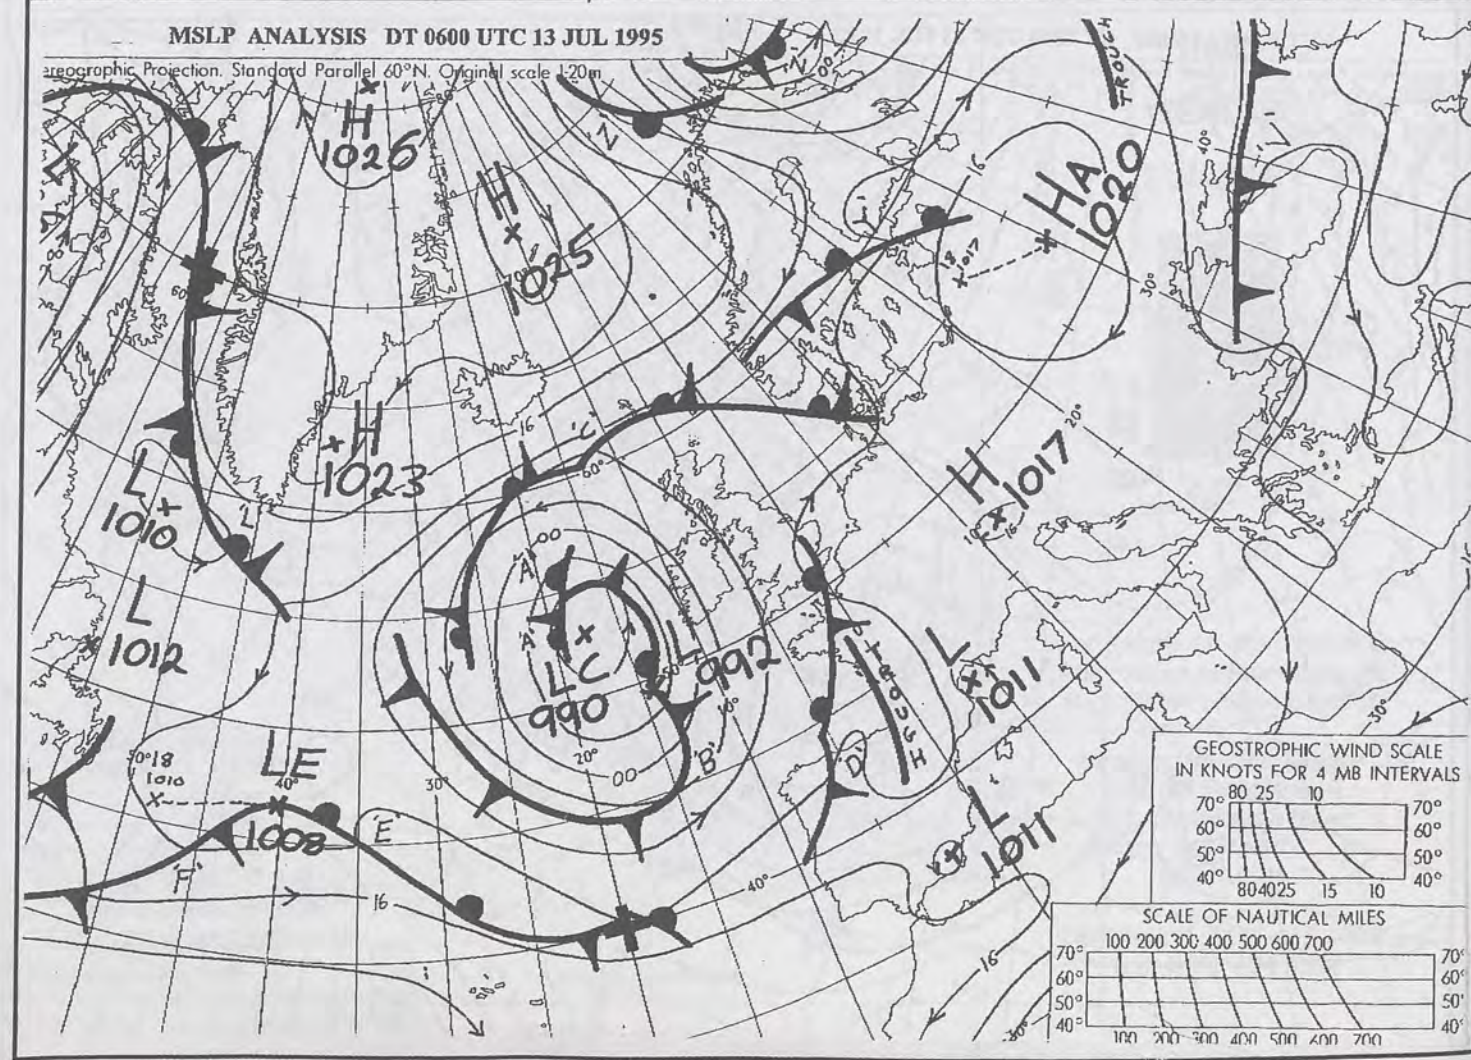 MSLP ANALYSIS DT 0600 UTC 13 JUL 1995
ereographic Projection. Standard Parallel 60°N. Original scale 1:20m
H
1026
H
1025
'N'
'N'
00
TROUGH
40°
HA
1020
16
18
1017
30°
20°
H
1023
16
'C'
60°
H
1017
16
L
1010
'L'
L
1012
'A'
00
'A'
LC
990
L
992
10°
20°
00
'B'
TROUGH
'D'
L
1011
L
1011
50°
18
1010
LE
40°
1008
30°
'E'
'F'
16
40°
16
30°
GEOSTROPHIC WIND SCALE
IN KNOTS FOR 4 MB INTERVALS
80 25 10
70° 70°
60° 60°
50° 50°
40° 40°
80 40 25 15 10
SCALE OF NAUTICAL MILES
100 200 300 400 500 600 700
70° 70°
60° 60°
50° 50°
40° 40°
100 200 300 400 500 600 700